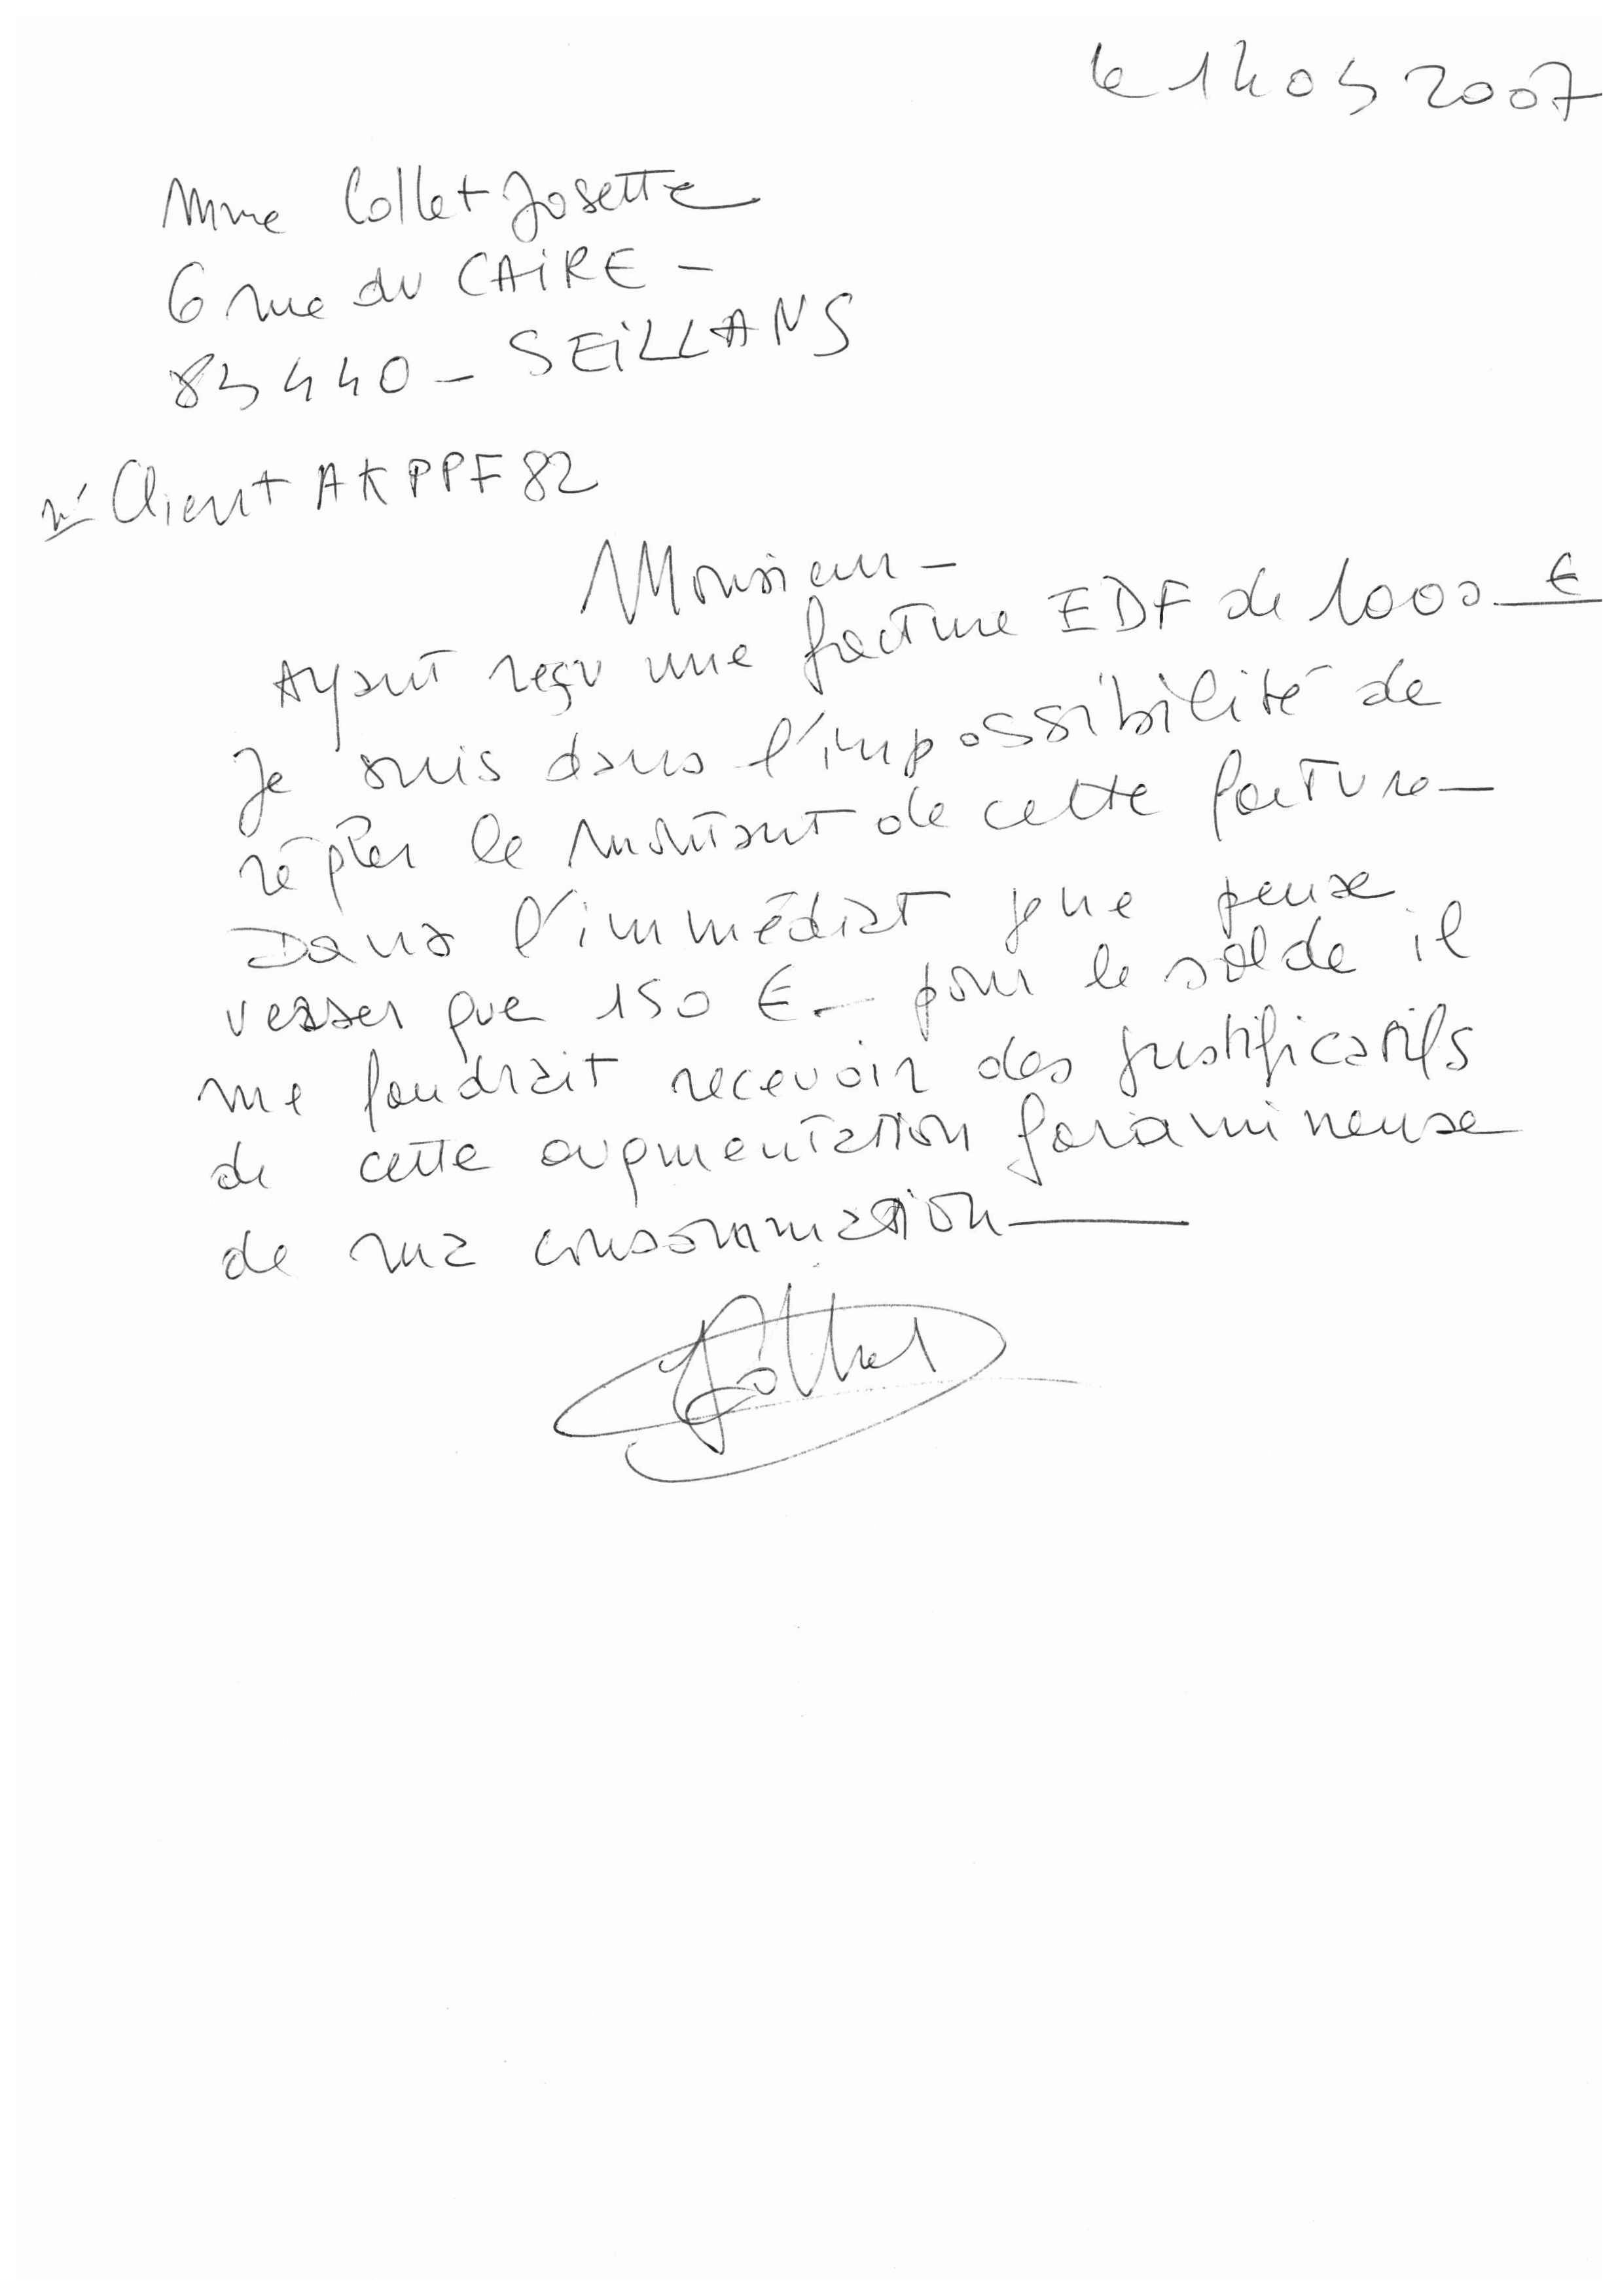 le 14 05 2007
Mme Collet Josette
6 rue du CAIRE -
83440 - SEILLANS
n° Client AKPPF82
Monsieur -
Ayant reçu une facture EDF de 1000 €
Je suis dans l'impossibilité de
régler le montant de cette facture -
Dans l'immédiat je ne peuxe
verser que 150 € - pour le solde il
me faudrait recevoir des justificatifs
de cette augmentation faramineuse
de ma consommation